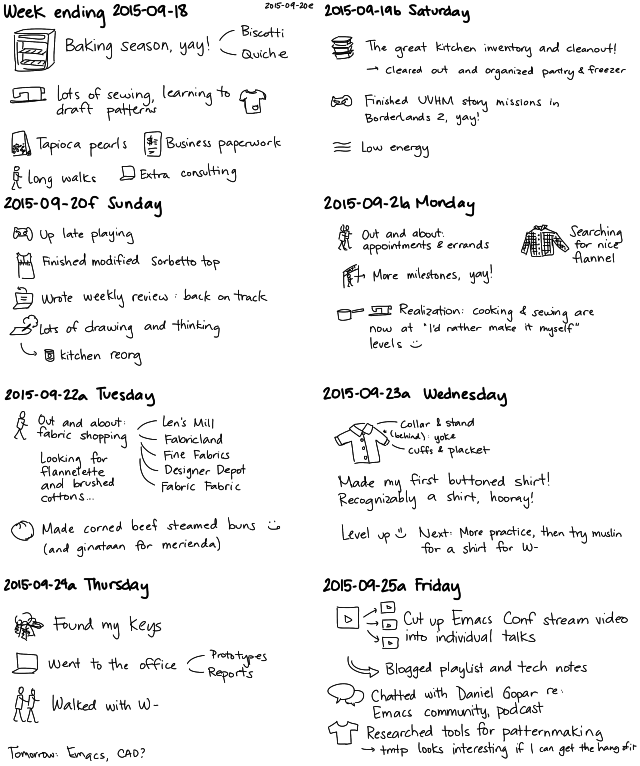 Week ending 2015-09-18
2015-09-20e
Baking season, yay!
Biscotti
Quiche
Lots of sewing, learning to
draft patterns
Tapioca pearls
Business paperwork
Long walks
Extra consulting
2015-09-19b Saturday
The great kitchen inventory and cleanout!
→ Cleared out and organized pantry & freezer
Finished UVHM story missions in
Borderlands 2, yay!
Low energy
2015-09-20f Sunday
Up late playing
Finished modified Sorbetto top
Wrote weekly review: back on track
Lots of drawing and thinking
kitchen reorg
2015-09-21b Monday
Out and about:
appointments & errands
Searching
for nice
flannel
More milestones, yay!
Realization: cooking & sewing are
now at "I'd rather make it myself"
levels
2015-09-22a Tuesday
Out and about:
fabric shopping
Looking for
flannelette
and brushed
cottons...
Len's Mill
Fabricland
Fine Fabrics
Designer Depot
Fabric Fabric
Made corned beef steamed buns
(and ginataan for merienda)
2015-09-23a Wednesday
Collar & stand
(behind): yoke
cuffs & placket
Made my first buttoned shirt!
Recognizably a shirt, hooray!
Level up
Next: More practice, then try muslin
for a shirt for W-
2015-09-24a Thursday
Found my keys
Went to the office
Prototypes
Reports
Walked with W-
Tomorrow: Emacs, CAD?
2015-09-25a Friday
Cut up Emacs Conf stream video
into individual talks
Blogged playlist and tech notes
Chatted with Daniel Gopar re:
Emacs community, podcast
Researched tools for patternmaking
→ tmtp looks interesting if I can get the hang of it